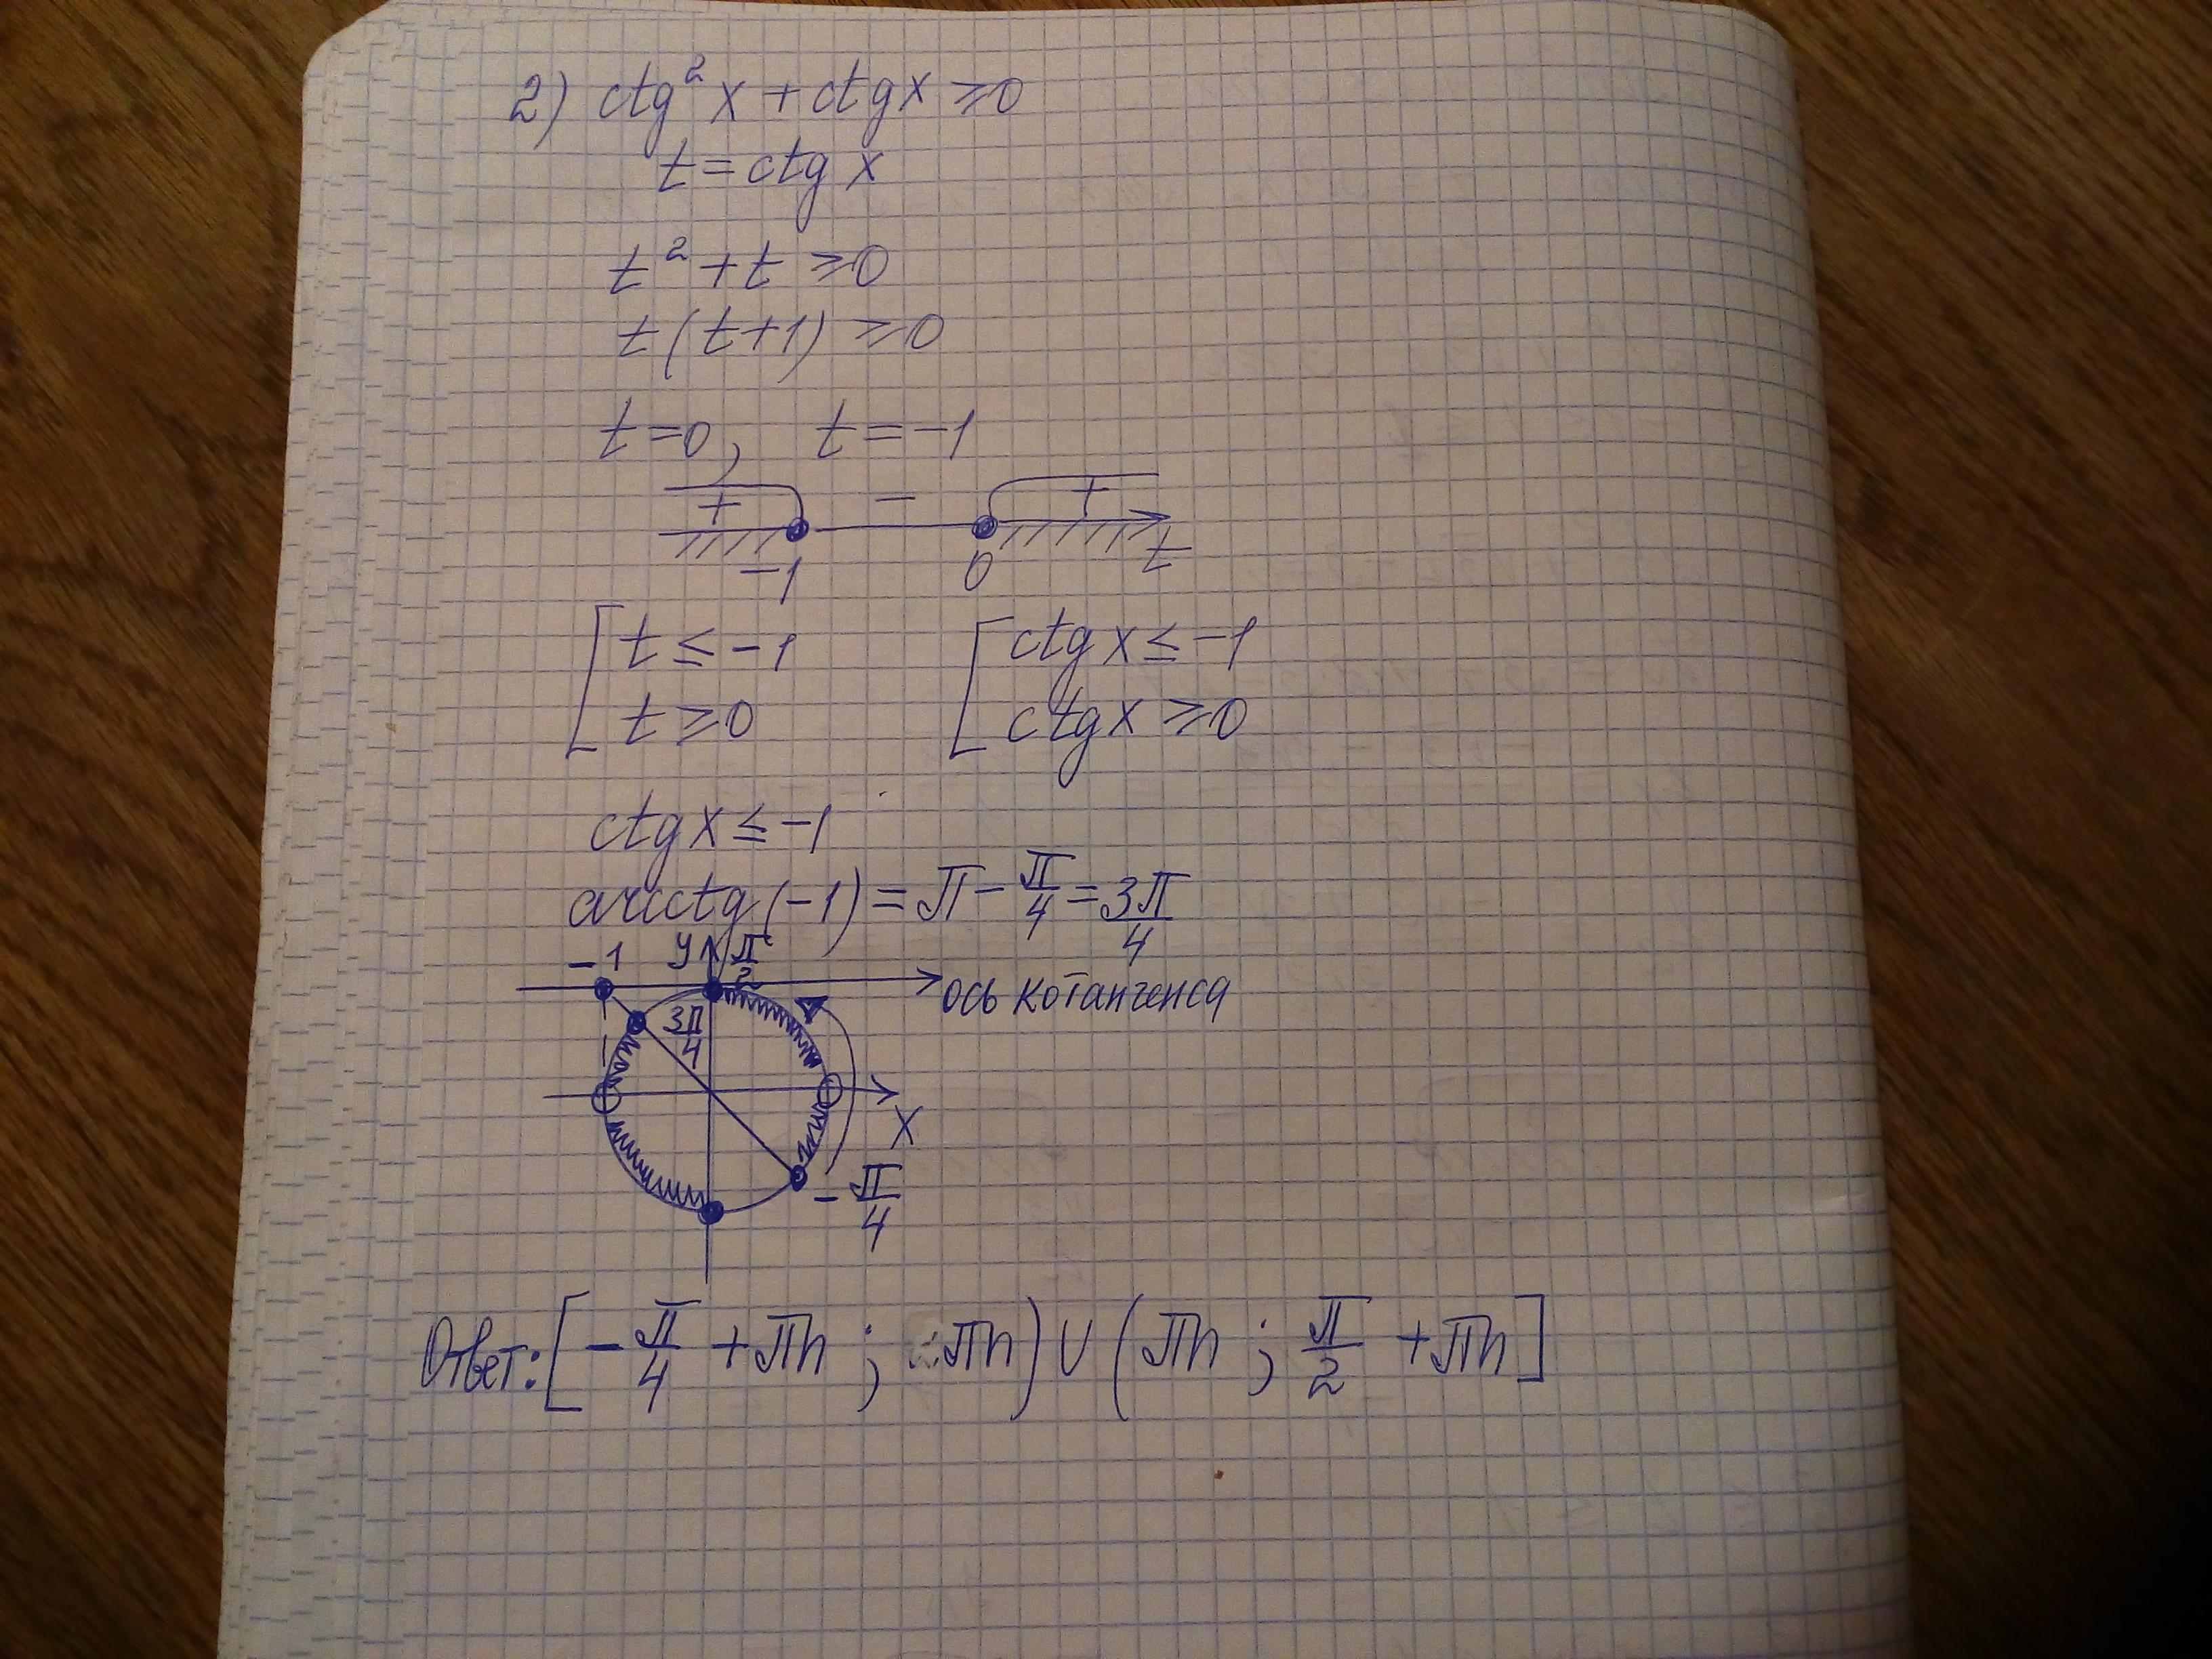 2) ctg²x + ctgx ⩾ 0
t = ctg x
t² + t ⩾ 0
t(t+1) ⩾ 0
t=0, t=-1
+ - +
-1 0 t
[ t ≤ -1 [ ctgx ≤ -1
t ⩾ 0 ctgx ⩾ 0
ctgx ≤ -1
arcctg(-1) = π - π/4 = 3π/4
-1 y π/2
ось котангенса
3π/4
x
-π/4
Ответ: [-π/4 + πn ; πn) ∪ (πn ; π/2 + πn]